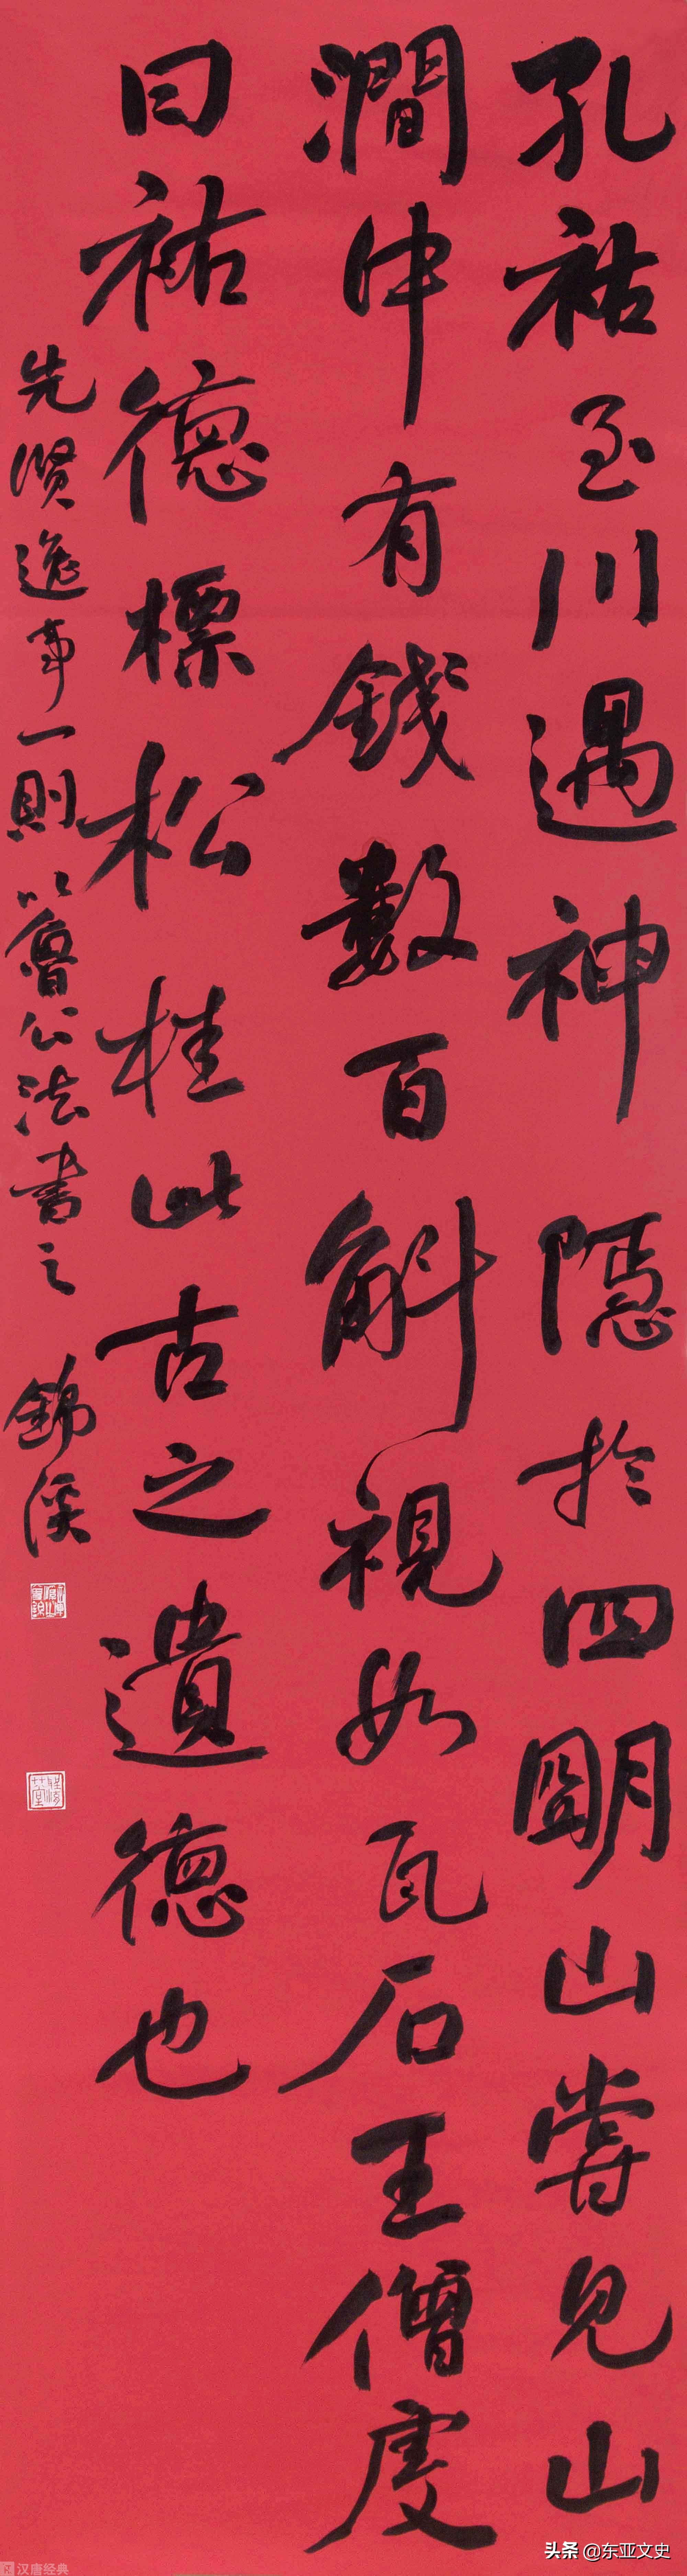 孔祐至川遇神 隱於四明山嘗見山
澗中有錢數百斛視如瓦石王僧虔
曰祐德標松桂此古之遺德也
先賢逸事一則以魯公法書之 錦溪
汉唐经典
头条 @东亚文史